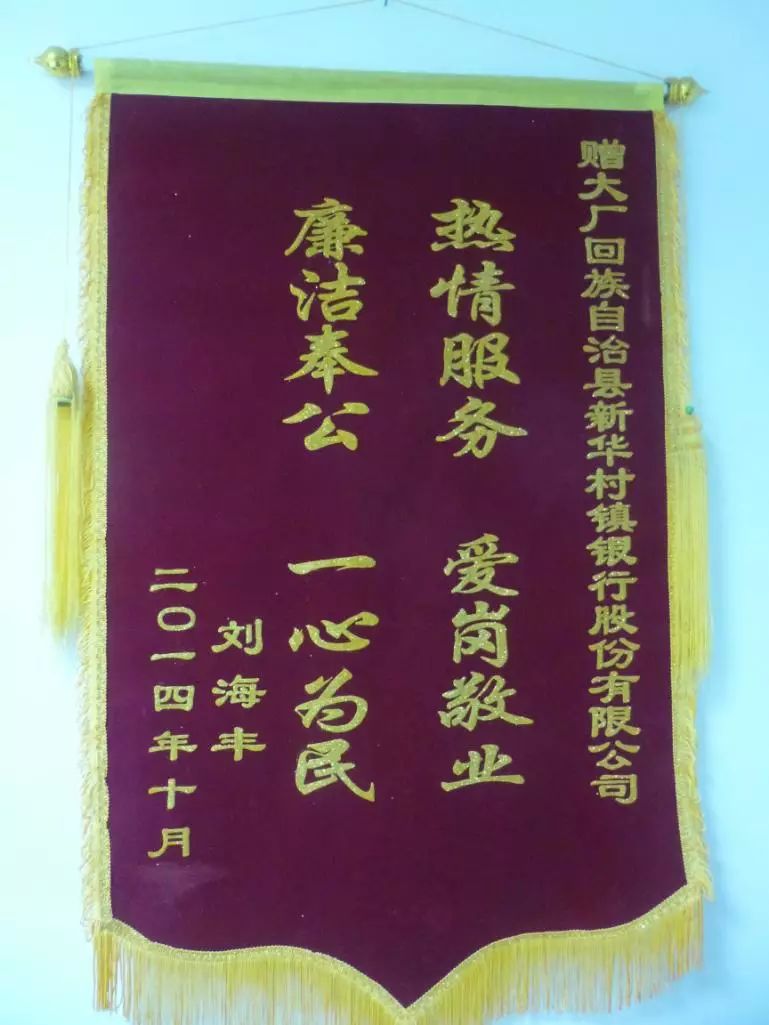 赠大厂回族自治县新华村镇银行股份有限公司
热情服务 爱岗敬业
廉洁奉公 一心为民
刘海丰
二〇一四年十月